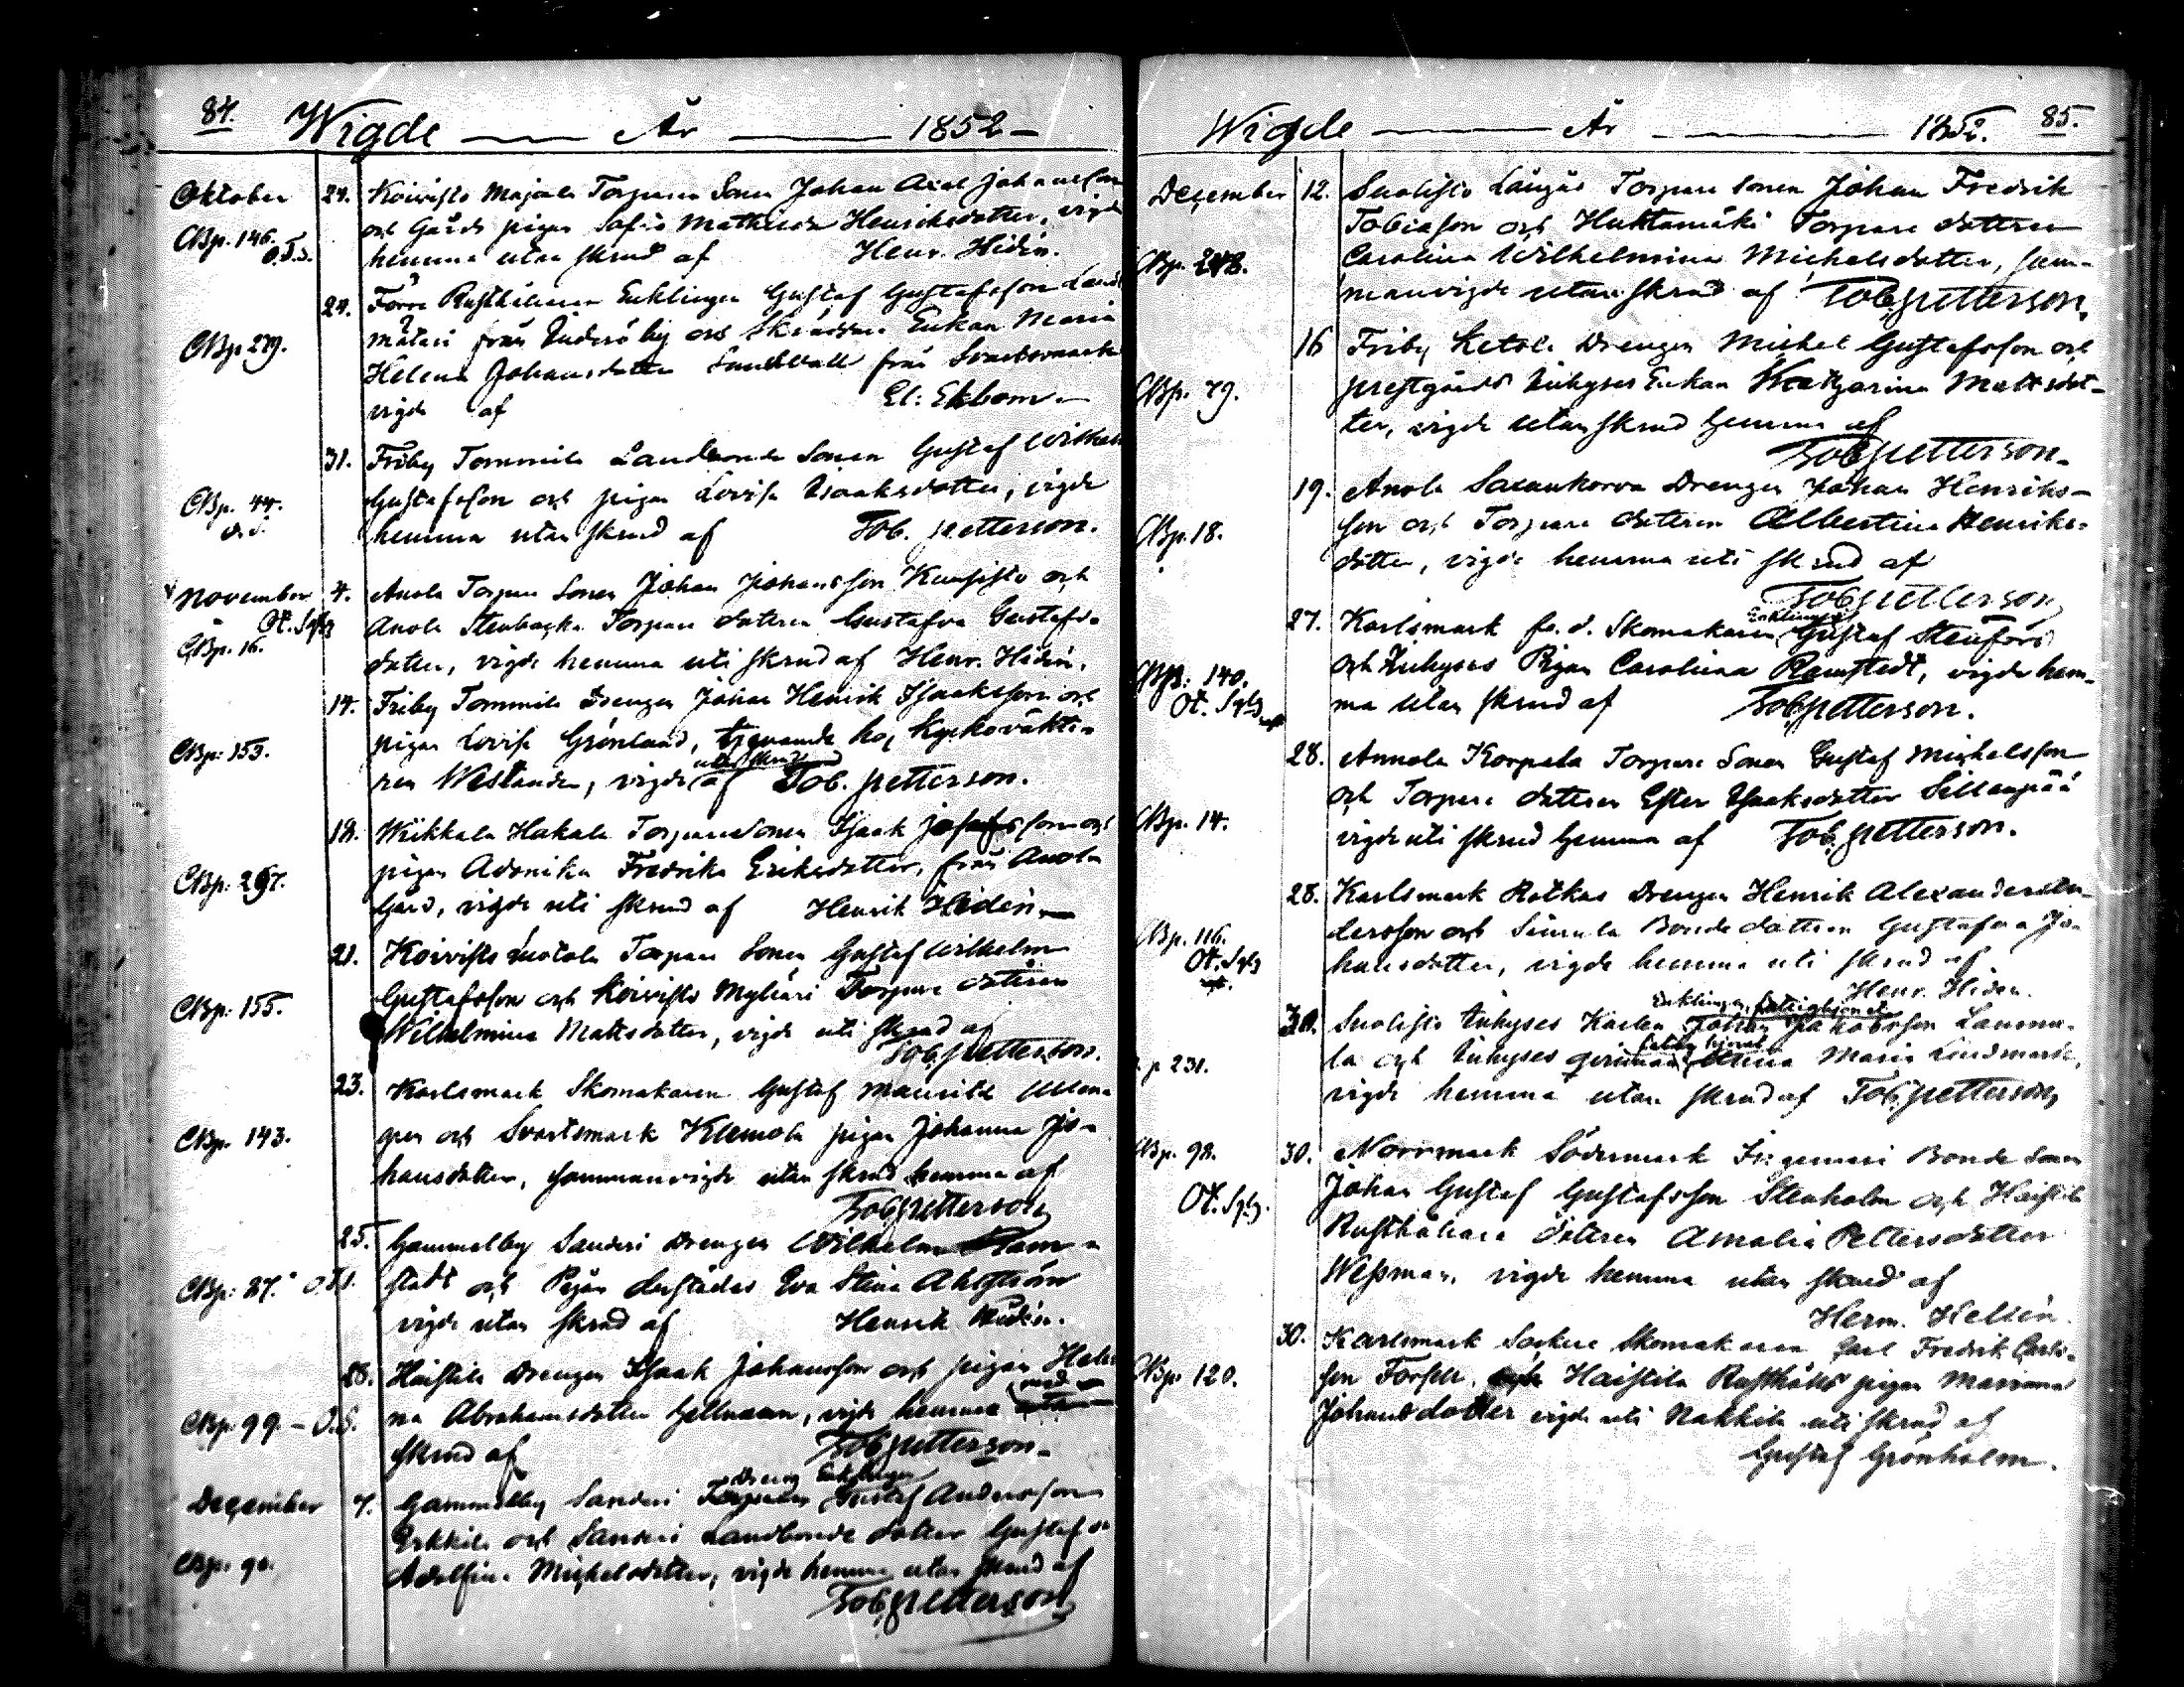 84. Wigde — År — 1852 —
Oktober 24. Koivisto Majala Torpare Sonen Johan Axel Johansson
CBp. 146. och Gårds pigan Sofia Mathilda Henriksdotter, vigde
hemma utan skrud af Henr. Hidén.
24. Förre Rusthållaren Enklingen Gustaf Gustafsson Land
CBp 279. mätari från by och Enkan Maria
Helena Johansdotter Sundvall från Svartsmark
vigde af El: Ekbom.
31. Friby Tommila Landbonde Sonen Gustaf Wilhelm
CBp. 44. Gustafsson och pigan Lovisa Isaaksdotter, vigde
hemma utan skrud af Tob. Petterson.
November 4. Anola Torpare Sonen Johan Johansson Kunsisto och
Ot. Sqls
CBp. 16. Anola Stenbacka Torpare dotteren Gustafva Gustafs-
dotter, vigde hemma uti skrud af Henr. Hidén.
14. Friby Tommila Drengen Johan Henrik Isaaksson och
CBp: 153. pigan Lovisa Grönlund, tjenande hos Kyrkovakta-
utan skrud
ren Westander, vigde af Tob. Petterson.
18. Wiikkala Hakala Torparesonen Isaak Josefsson och
CBp: 267. pigan Adonika Fredrika Eriksdotter, från Anola
Gård, vigde uti skrud af Henrik Hidén.
21. Koivisto Torpare Sonen Gustaf Wilhelm
CBp: 155. Gustafsson och Koivisto Myllari Torpare dotteren
Wilhelmina Mattsdotter, vigde uti skrud af
Tob. Petterson.
23. Karlsmark Skomakaren Gustaf Mauritz
CBp. 143. och Svartsmark Klemola pigan Johanna Jo-
hansdotter, sammanvigde utan skrud hemma af
Tob. Petterson
25. Gammelby Sanderi Drengen Wilhelm Ram-
CBp: 87. stedt och Pigan Eva Stina Ahlström
vigde utan skrud af Henrik Hidén.
28. Haistila Drengen Isaak Johansson och pigan Hele-
med
CBp. 99. – na Abrahamsdotter Hellman, vigde hemma utan
skrud af Tob. Petterson.
Dreng Enklingen
December 7. Gammelby Sanderi Torparen Gustaf Andersson
Erkkila och Sanderi Landbonde dotter Gustafva
CBp. 90. Adolfina Michelsdotter, vigde hemma utan skrud af
Tob. Petterson
Wigde — År — 1852. 85.
December 12. Suolisto Långås Torpare Sonen Johan Fredrik
Tobiasson och Huhtamäki Torpare dotteren
CBp. 248. Carolina Wilhelmina Michelsdotter, sam-
manvigde utan skrud af Tob. Petterson.
16 Friby Ketola Drengen Michel Gustafsson och
CBp. 79. prestgårds Inhyses Enkan Katharina Mattsdot-
ter, vigde utan skrud hemma af
Tob. Petterson.
19. Anola Saxankorva Drengen Johan Henriks-
CBp. 18. son och Torpare dotteren Albertina Henriks-
dotter, vigde hemma uti skrud af
Tob. Petterson
Enklingen
27. Karlsmark f.d. Skomakaren Gustaf Stenfors
CBp: 140. och Inhyses Pigan Carolina Ramstedt, vigde hem-
Ot. Sqls ma utan skrud af Tob. Petterson.
28. Annola Korpela Torpare Sonen Gustaf Michelsson
CBp. 14. och Torpare dotteren Ester Isaaksdotter Sillanpää
vigde uti skrud hemma af Tob. Petterson.
28. Karlsmark Ratkas Drengen Henrik Alexander
CBp. 116. dersson och Simula Bonde dotteren Gustafva Jo-
Ot. Sqls hansdotter, vigde hemma uti skrud af
Henr. Hidén.
Enklingen, fattighjonet
30. Suolisto Inhyses Karlen Johan Jakobsson Lamma-
fattig hjonet
p 231. la och Inhyses qvinnan Anna Maria Lindmark,
vigde hemma utan skrud af Tob. Petterson
CBp. 98. 30. Norrmark Södermark Bonde Sonen
Ot. Sqls. Johan Gustaf Gustafsson Stenholm och Haistila
Rusthållare dotteren Amalia Pettersdotter
Wessman, vigde hemma utan skrud af
Herm. Hellén.
30. Karlsmark Socken Skomakaren Carl Fredrik Carls-
CBp. 120. son Forsell, och Haistila Rusthålls pigan Marianna
Johansdotter vigde uti Nakkila uti skrud af
Gustaf Grönholm.